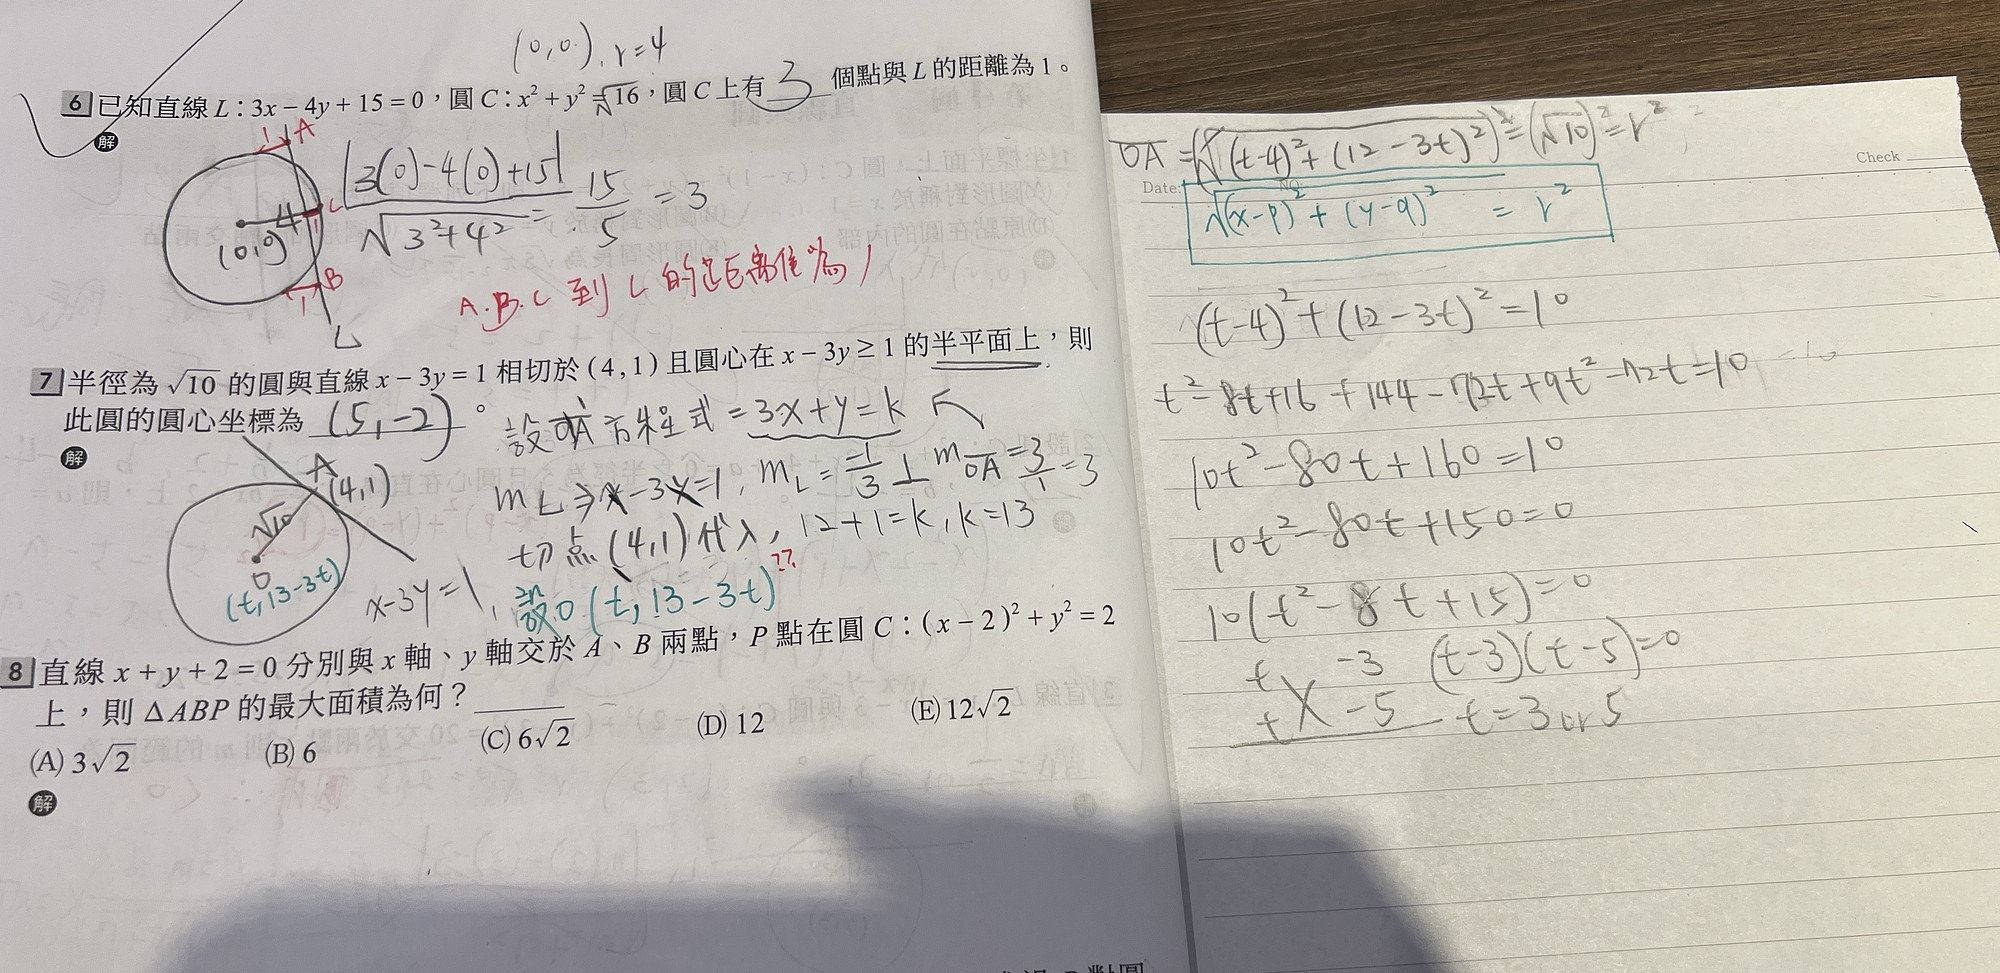 (0,0), r=4
6 已知直線 L：3x－4y＋15＝0，圓 C：x²＋y²＝16，圓 C 上有 3 個點與 L 的距離為 1。
解
1 A
|3(0)-4(0)+15|
√3²+4² = 15/5 = 3
4 C
1
(0,0)
B
1
L
A.B.C 到 L 的距離值為 1
7 半徑為 √10 的圓與直線 x－3y＝1 相切於 (4,1) 且圓心在 x－3y≥1 的半平面上，則
此圓的圓心坐標為 (5,-2)。
解
設 OA 方程式 = 3x+y=k
A
(4,1)
√10
O
(t,13-3t)
x-3y=1
mL⇒x-3y=1, mL=-1/3 ⊥ mOA=3/1=3
切点(4,1)代入, 12+1=k, k=13
設O(t,13-3t) ??
8 直線 x＋y＋2＝0 分別與 x 軸、y 軸交於 A、B 兩點，P 點在圓 C：(x－2)²＋y²＝2
上，則 ΔABP 的最大面積為何？
(A) 3√2 (B) 6 (C) 6√2 (D) 12 (E) 12√2
解
Date: NO:
Check
OA = (√(t-4)²+(12-3t)²)² = (√10)² = r²
√(x-p)²+(y-q)² = r²
(t-4)²+(12-3t)²=10
t²-8t+16+144-72t+9t²-72t=10
10t²-80t+160=10
10t²-80t+150=0
10(t²-8t+15)=0
t -3 (t-3)(t-5)=0
t -5 t=3 or 5